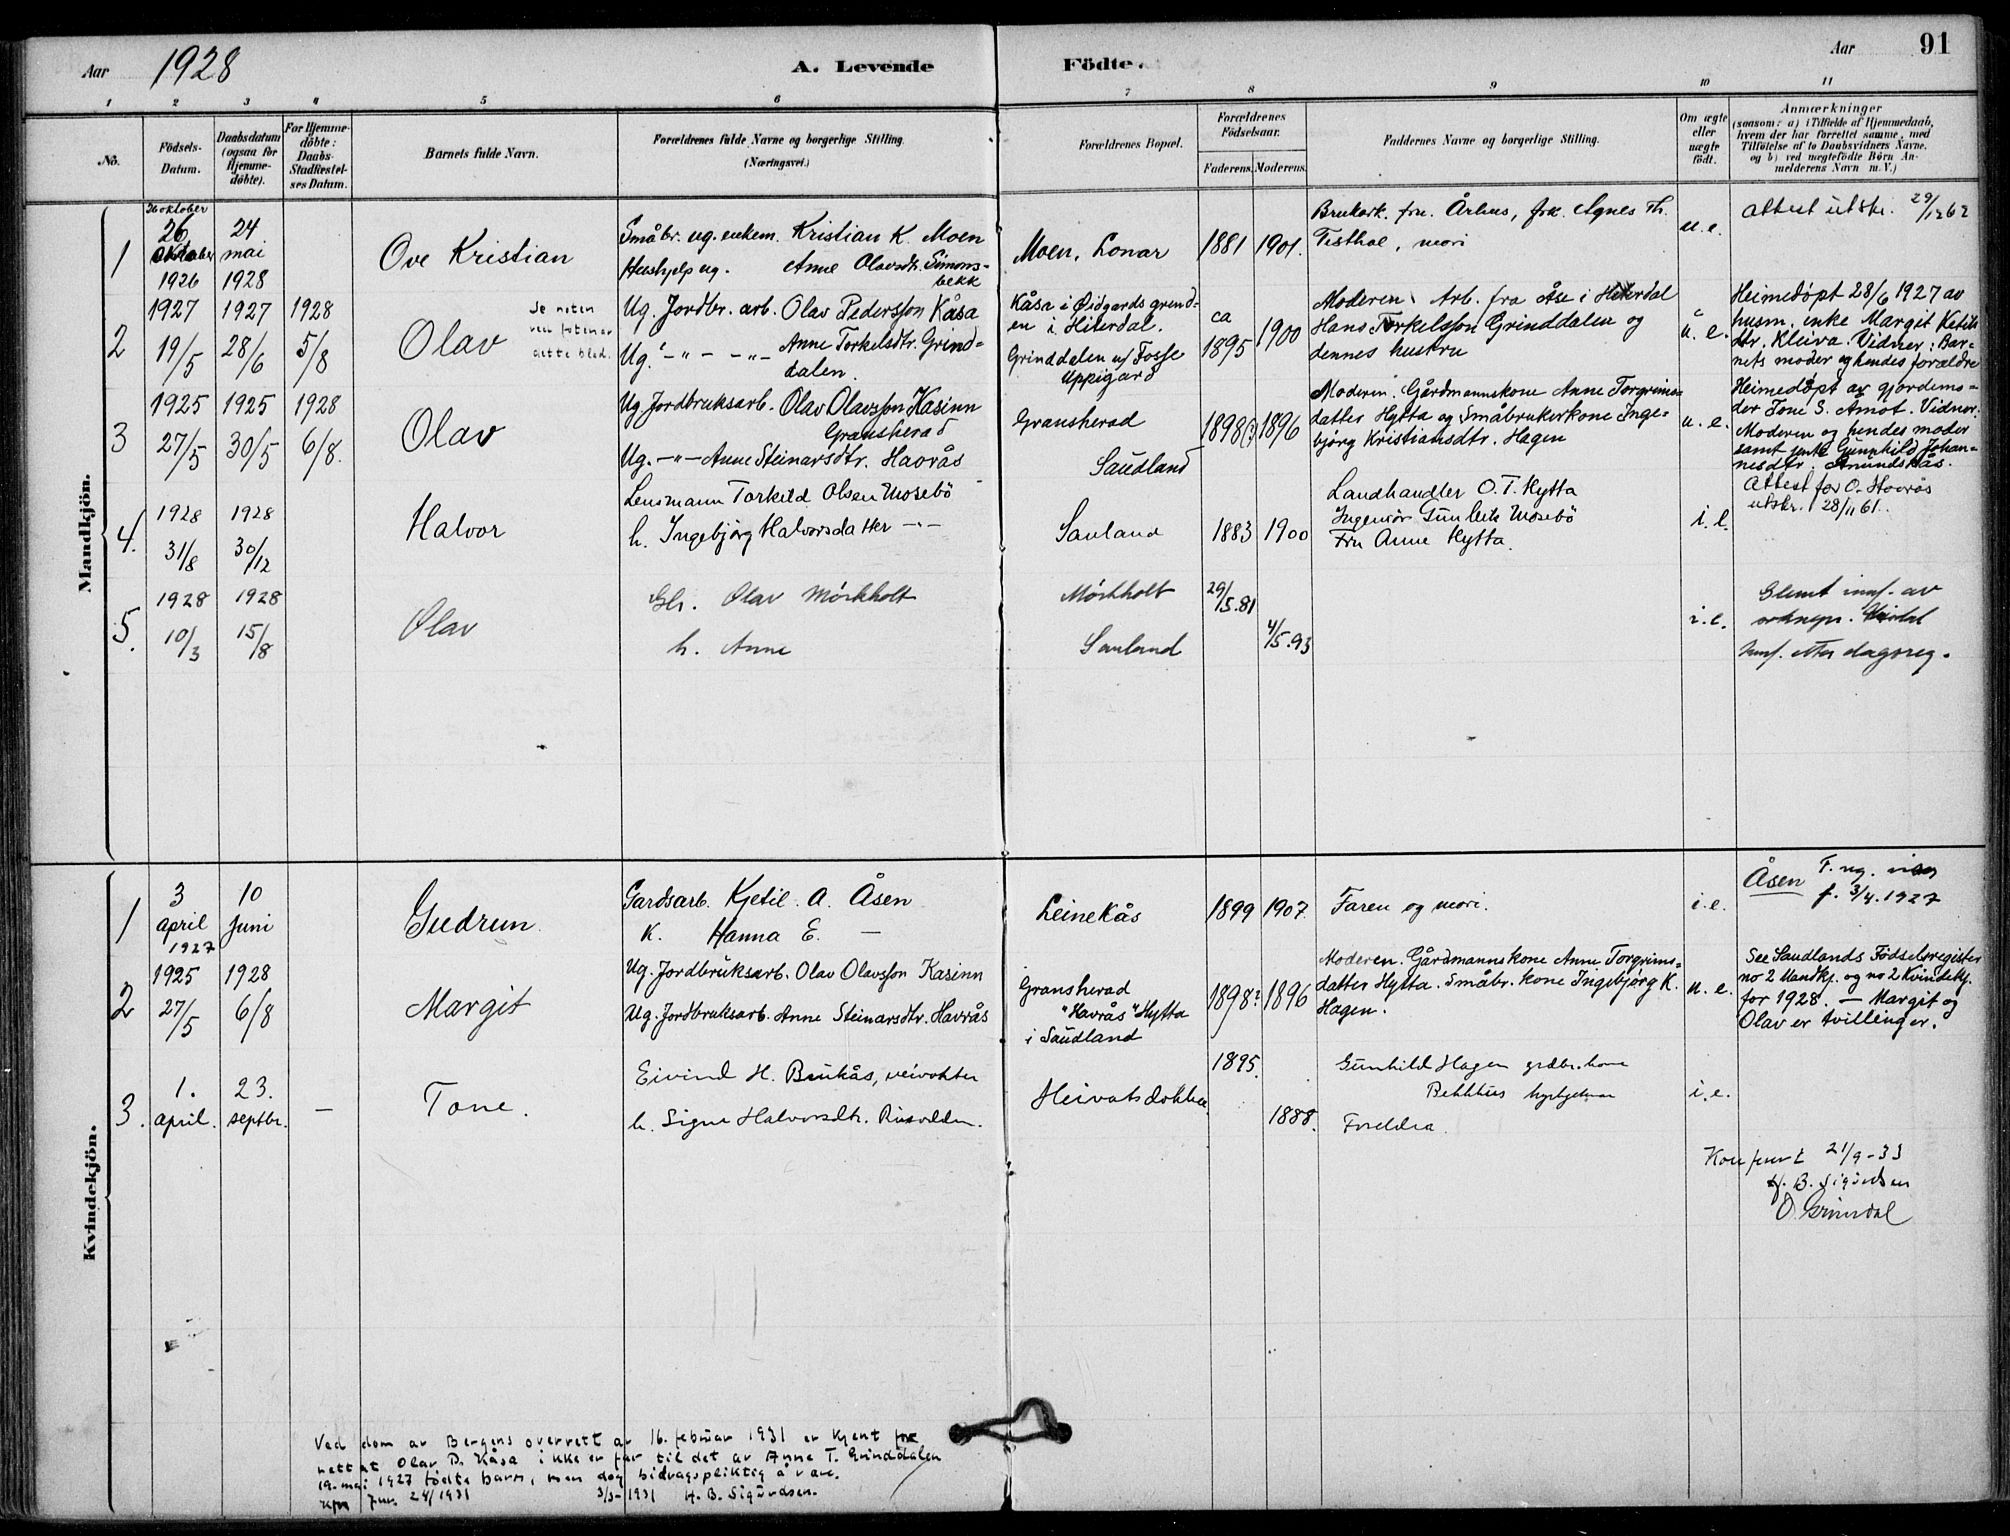 Aar 1928
A. Levende Födte.
Aar 91
1 2 3 4 5 6 7 8 9 10 11
No.
Födsels-Datum.
Daabsdatum (ogsaa for Hjemme-döbte).
For Hjemme-döbte: Daabs-Stadfæstel-ses Datum.
Barnets fulde Navn.
Forældrenes fulde Navne og borgerlige Stilling.
(Næringsvei.)
Forældrenes Bopæl.
Forældrenes Födselsaar.
Faderens. Moderens.
Faddernes Navne og borgerlige Stilling.
Om ægte eller uægte födt.
Anmærkninger
(saasom: a) i Tilfælde af Hjemmedaab,
hvem der har forrettet samme, med
Tilföielse af to Daabsvidners Navne,
og b) ved uægtefödte Börn An-
melderens Navn m.V.)
Mandkjön.
1
26 oktober
26
oktober
1926
24
mai
1928
Ove Kristian
Småbr. ug. enkem. Kristian K. Moen
Hushjelp ug. Anne Olavsdtr. Simons-
bekk
Moen, Lonar
1881 1901.
Brukark. fru. Århus, frk. Agnes Th.
Tisthol, mori
u.e.
Attest utskr. 29/12 62
2
1927
19/5
1927
28/6
1928
5/8
Olav
Se noten
ved foten av
dette blad.
Ug. Jordbr. arb. Olav Pedersson Kåsa
Ug. -"- -"- Anne Torkelsdtr. Grind-
dalen.
Kåsa i Øidgards grend-
en i Hiterdal.
Grinddalen u/ Fosse
Uppigard
ca
1895 1900
Moderen. Arb. fra Åse i Hiterdal
Hans Torkelsson Grinddalen og
dennes hustru
u. e.
Heimedøpt 28/6 1927 av
husm. enke Margit Ketils
dtr. Kleiva. Vidner: Bar-
nets moder og hendes forældre
3
1925
27/5
1925
30/5
1928
6/8.
Olav
Ug. Jordbruksarb. Olav Olavsson Kasinn
Gransherad
Ug. -"- Anne Steinarsdtr. Havrås
Gransherad
Saudland
1898(?) 1896
Moderen. Gårdmannskone Anne Torgrims-
datter Hytta og Småbrukerkone Inge-
bjørg Kristiansdtr. Hagen
u. e.
Heimedøpt av gjordemo-
der Tone S. Åmot. Vidner:
Moderen og hendes moder
samt enke Gunnhild Johan-
nesdtr. Åmundskås.
Attest for O. Havrås
utskr. 28/11 61.
4.
1928
31/8
1928
30/12
Halvor
Lensmann Torkild Olsen Mosebö
h. Ingebjörg Halvorsdatter -"-
Sauland
1883 1900
Landhandler O. T. Hytta
Ingeniør Gunleik Mosebö
Fru Anne Hytta.
i. e.
5.
1928
10/3
1928
15/8
Olav
Olav Mörkholt
h. Anne
Mörkholt
Sauland
29/5.81
4/5.93
i. e.
Glemt innf. av
soknepr.
Innf. etter dagsreg.
Kvindekjön.
1
3
april
1927
10
Juni
Gudrun
Gardsarb. Kjetil A. Åsen
K. Hanna E. —
Leinekås
1899 1907.
Faren og mori.
i.e.
Åsen
f. 3/4. 1927
2
1925
27/5
1928
6/8
Margit
Ug. Jordbruksarb. Olav Olavsson Kasinn
Ug. Jordbruksarb. Anne Steinarsdtr. Havrås
Gransherad
"Havrås" Hytta
i Saudland
1898? 1896
Moderen. Gårdmannskone Anne Torgrims-
datter Hytta. Småbr. kone Ingebjørg K.
Hagen.
u. e.
See Saudlands Fødselsregister
no 2 Mandkj. og no 2 Kvindekj.
for 1928. — Margit og
Olav er tvillinger.
3.
1.
april.
23.
septbr.
—
Tone.
Eivind H. Brukås, veivokter
h. Signe Halvorsdtr.
1895.
1888.
Gunhild Hagen
Foreldra.
i.e.
Konferert 21/9-33
H. B. Sigurdsen
O. Grimdal
Ved dom av Bergens overrett av 16. februar 1931 er kjent for
rett at Olav P. Kåsa ikke er far til det av Anne T. Grinddalen
19. mai 1927 fødte barn, men dog bidragspliktig å være.
3/3-1931 H. B. Sigurdsen.